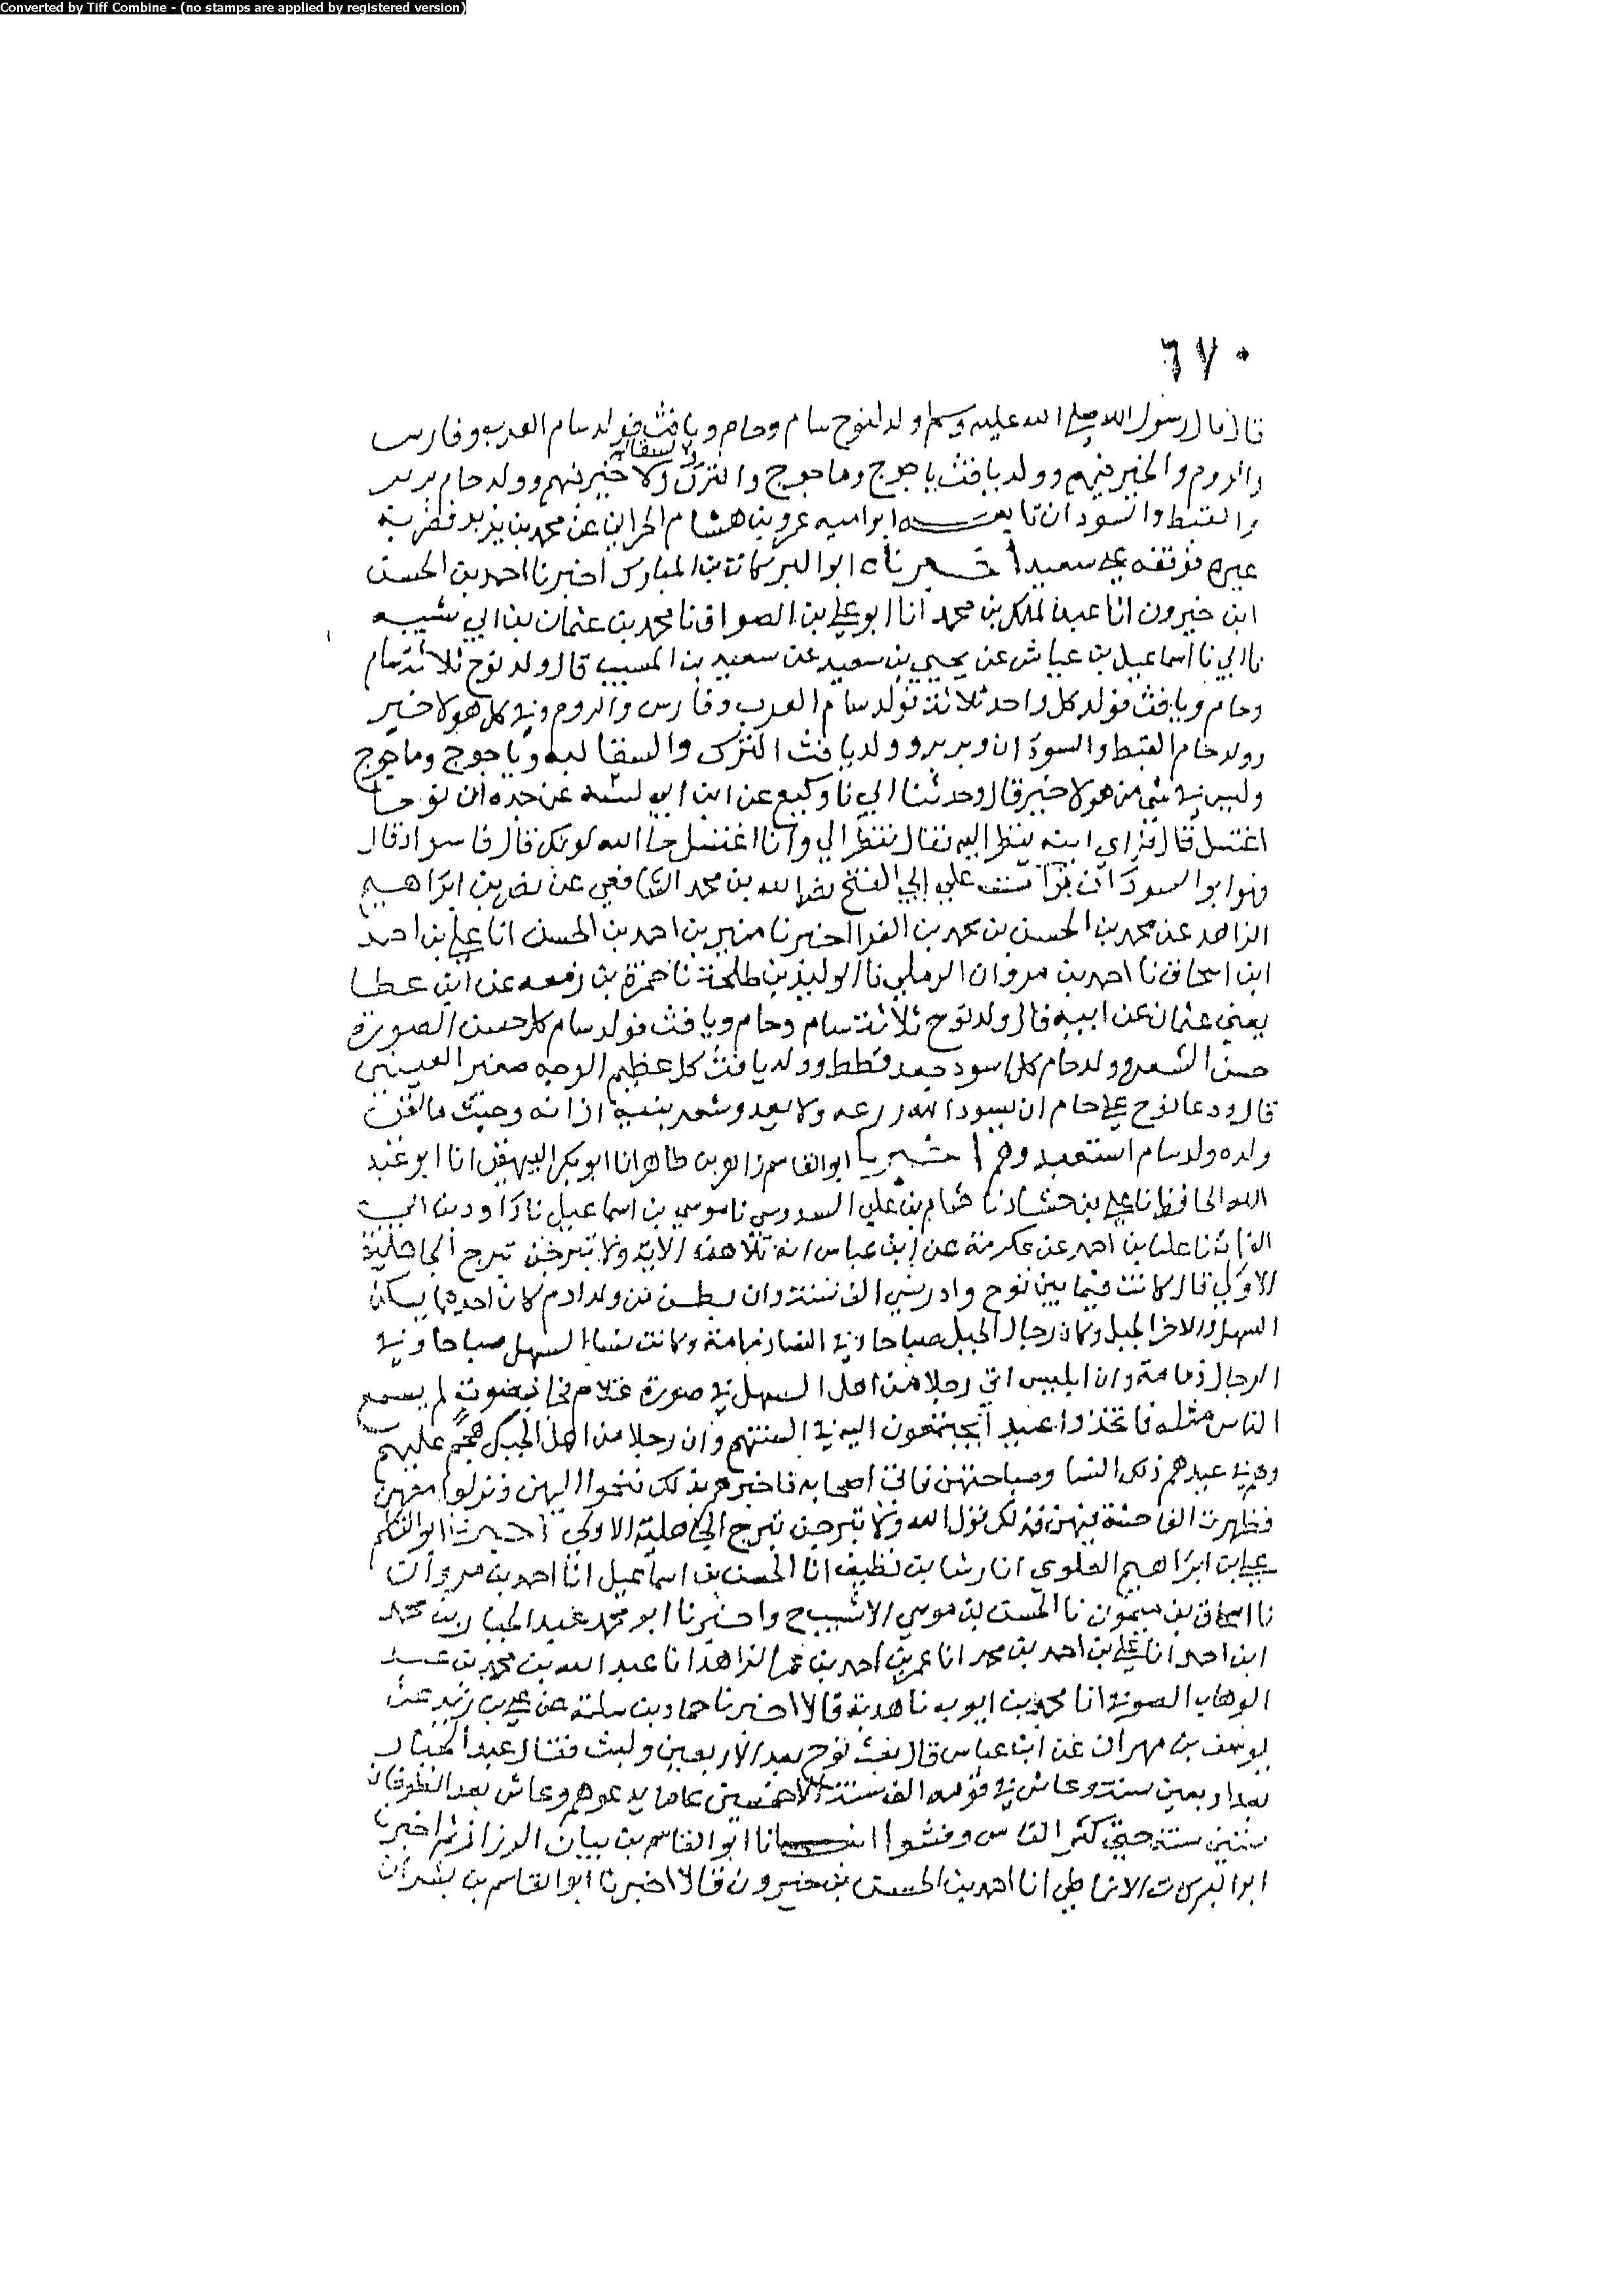 Converted by Tiff Combine - (no stamps are applied by registered version)
٦٧٠
قال قال رسول الله صلى الله عليه وسلم ولد لنوح سام وحام ويافث فولد سام العرب وفارس
والروم والخير فيهم وولد يافث ياجوج وماجوج والترك والسقالبه ولا خير فيهم وولد حام بربر
والقبط والسودان تابعه ابو اميه عمرو بن هشام الحراني عن محمد بن يزيد
غيره فوقفه على سعيد اخبرناه ابو البركات بن المبارك اخبرنا احمد بن الحسن
ابن خيرون انا عبد الملك بن محمد انا ابو علي بن الصواف نا محمد بن عثمان بن ابي شيبه
نا ابي نا اسماعيل بن عياش عن يحيى بن سعيد عن سعيد بن المسيب قال ولد نوح ثلاثة سام
وحام ويافث فولد كل واحد ثلاثة فولد سام العرب وفارس والروم وفي كل هولا خير
وولد حام القبط والسودان وبربر وولد يافث الترك والسقالبه وياجوج وماجوج
وليس في شي من هولا خير قال وحدثنا ابي نا وكيع عن ابن ابي عن جده ان نوحا
اغتسل قال فراى ابنه ينظر اليه فقال تنظر الي وانا اغتسل حا الله لونك قال فاسواد قال
فهو ابو السودان قرات علي ابي الفتح نصر الله بن محمد الشافعي عن نصر بن ابراهيم
الزاهد عن محمد بن الحسن بن محمد بن الفرا اخبرنا منير بن احمد بن الحسن انا علي بن احمد
ابن اسحاق نا احمد بن مروان الرملي نا الوليد بن طلحة نا ضمرة بن ربيعه عن ابن عطا
يعني عثمان عن ابيه قال ولد نوح ثلاثة سام وحام ويافث فولد سام كل حسن الصورة
حسن الشعر وولد حام كل اسود جعد قطط وولد يافث كل عظيم الوجه صغير العينين
قال ودعا نوح على حام ان يسود الله زرعه ولا يعدو شعر بنيه اذانه وحيث ما لقي
ولده ولد سام استعبدوهم اخبرنا ابو القاسم زاهر بن طاهر انا ابو بكر البيهقي انا ابو عبد
الله الحافظ نا علي بن حمشاد نا هشام بن علي السدوسي نا موسى بن اسماعيل نا داود بن ابي
الفرات نا علبا بن احمر عن عكرمة عن ابن عباس انه تلا هذه الاية ولا تبرجن تبرج الجاهلية
الاولى قال كانت فيما بين نوح وادريس الف سنة وان بطنين من ولد ادم كان احدهما يسكن
السهل والاخر الجبل وكان رجال الجبل صباحا وفي النسا دمامة وكانت نسا السهل صباحا وفي
الرجال دمامة وان ابليس اتى رجلا من اهل السهل في صورة غلام فجا فيه بصوت لم يسمع
الناس مثله فاتخذوا عيدا يجتمعون اليه في السنة وان رجلا من اهل الجبل هجم عليهم
وهم في عيدهم ذلك النسا وصباحتهن فاتى اصحابه فاخبرهم بذلك فتحولوا اليهن ونزلوا معهن
فظهرت الفاحشة فيهن فذلك قول الله ولا تبرجن تبرج الجاهلية الاولى اخبرنا ابو القاسم
علي بن ابراهيم العلوي انا رشا بن نظيف انا الحسن بن اسماعيل انا احمد بن مروان
نا اسحاق بن ميمون نا الحسن بن موسى الاشيب ح واخبرنا ابو محمد عبد الجبار بن محمد
ابن احمد انا علي بن احمد بن محمد انا عمر بن احمد بن عمر الزاهد انا عبد الله بن محمد بن عبد
الوهاب الصوفي انا محمد بن ايوب نا هدبة قالا اخبرنا حماد بن سلمة عن علي بن زيد عن
يوسف بن مهران عن ابن عباس قال بعث نوح بعد الاربعين ولبث فقال عبد الجبار
بعد اربعين سنة وعاش في قومه الف سنة الا خمسين عاما يدعوهم وعاش بعد الطوفان
ستين سنة حتى كثر الناس وفشوا انا ابو القاسم بن بيان الرزاز ثم اخبرنا
ابو البركات الانماطي انا احمد بن الحسن بن خيرون قالا اخبرنا ابو القاسم بن بشران